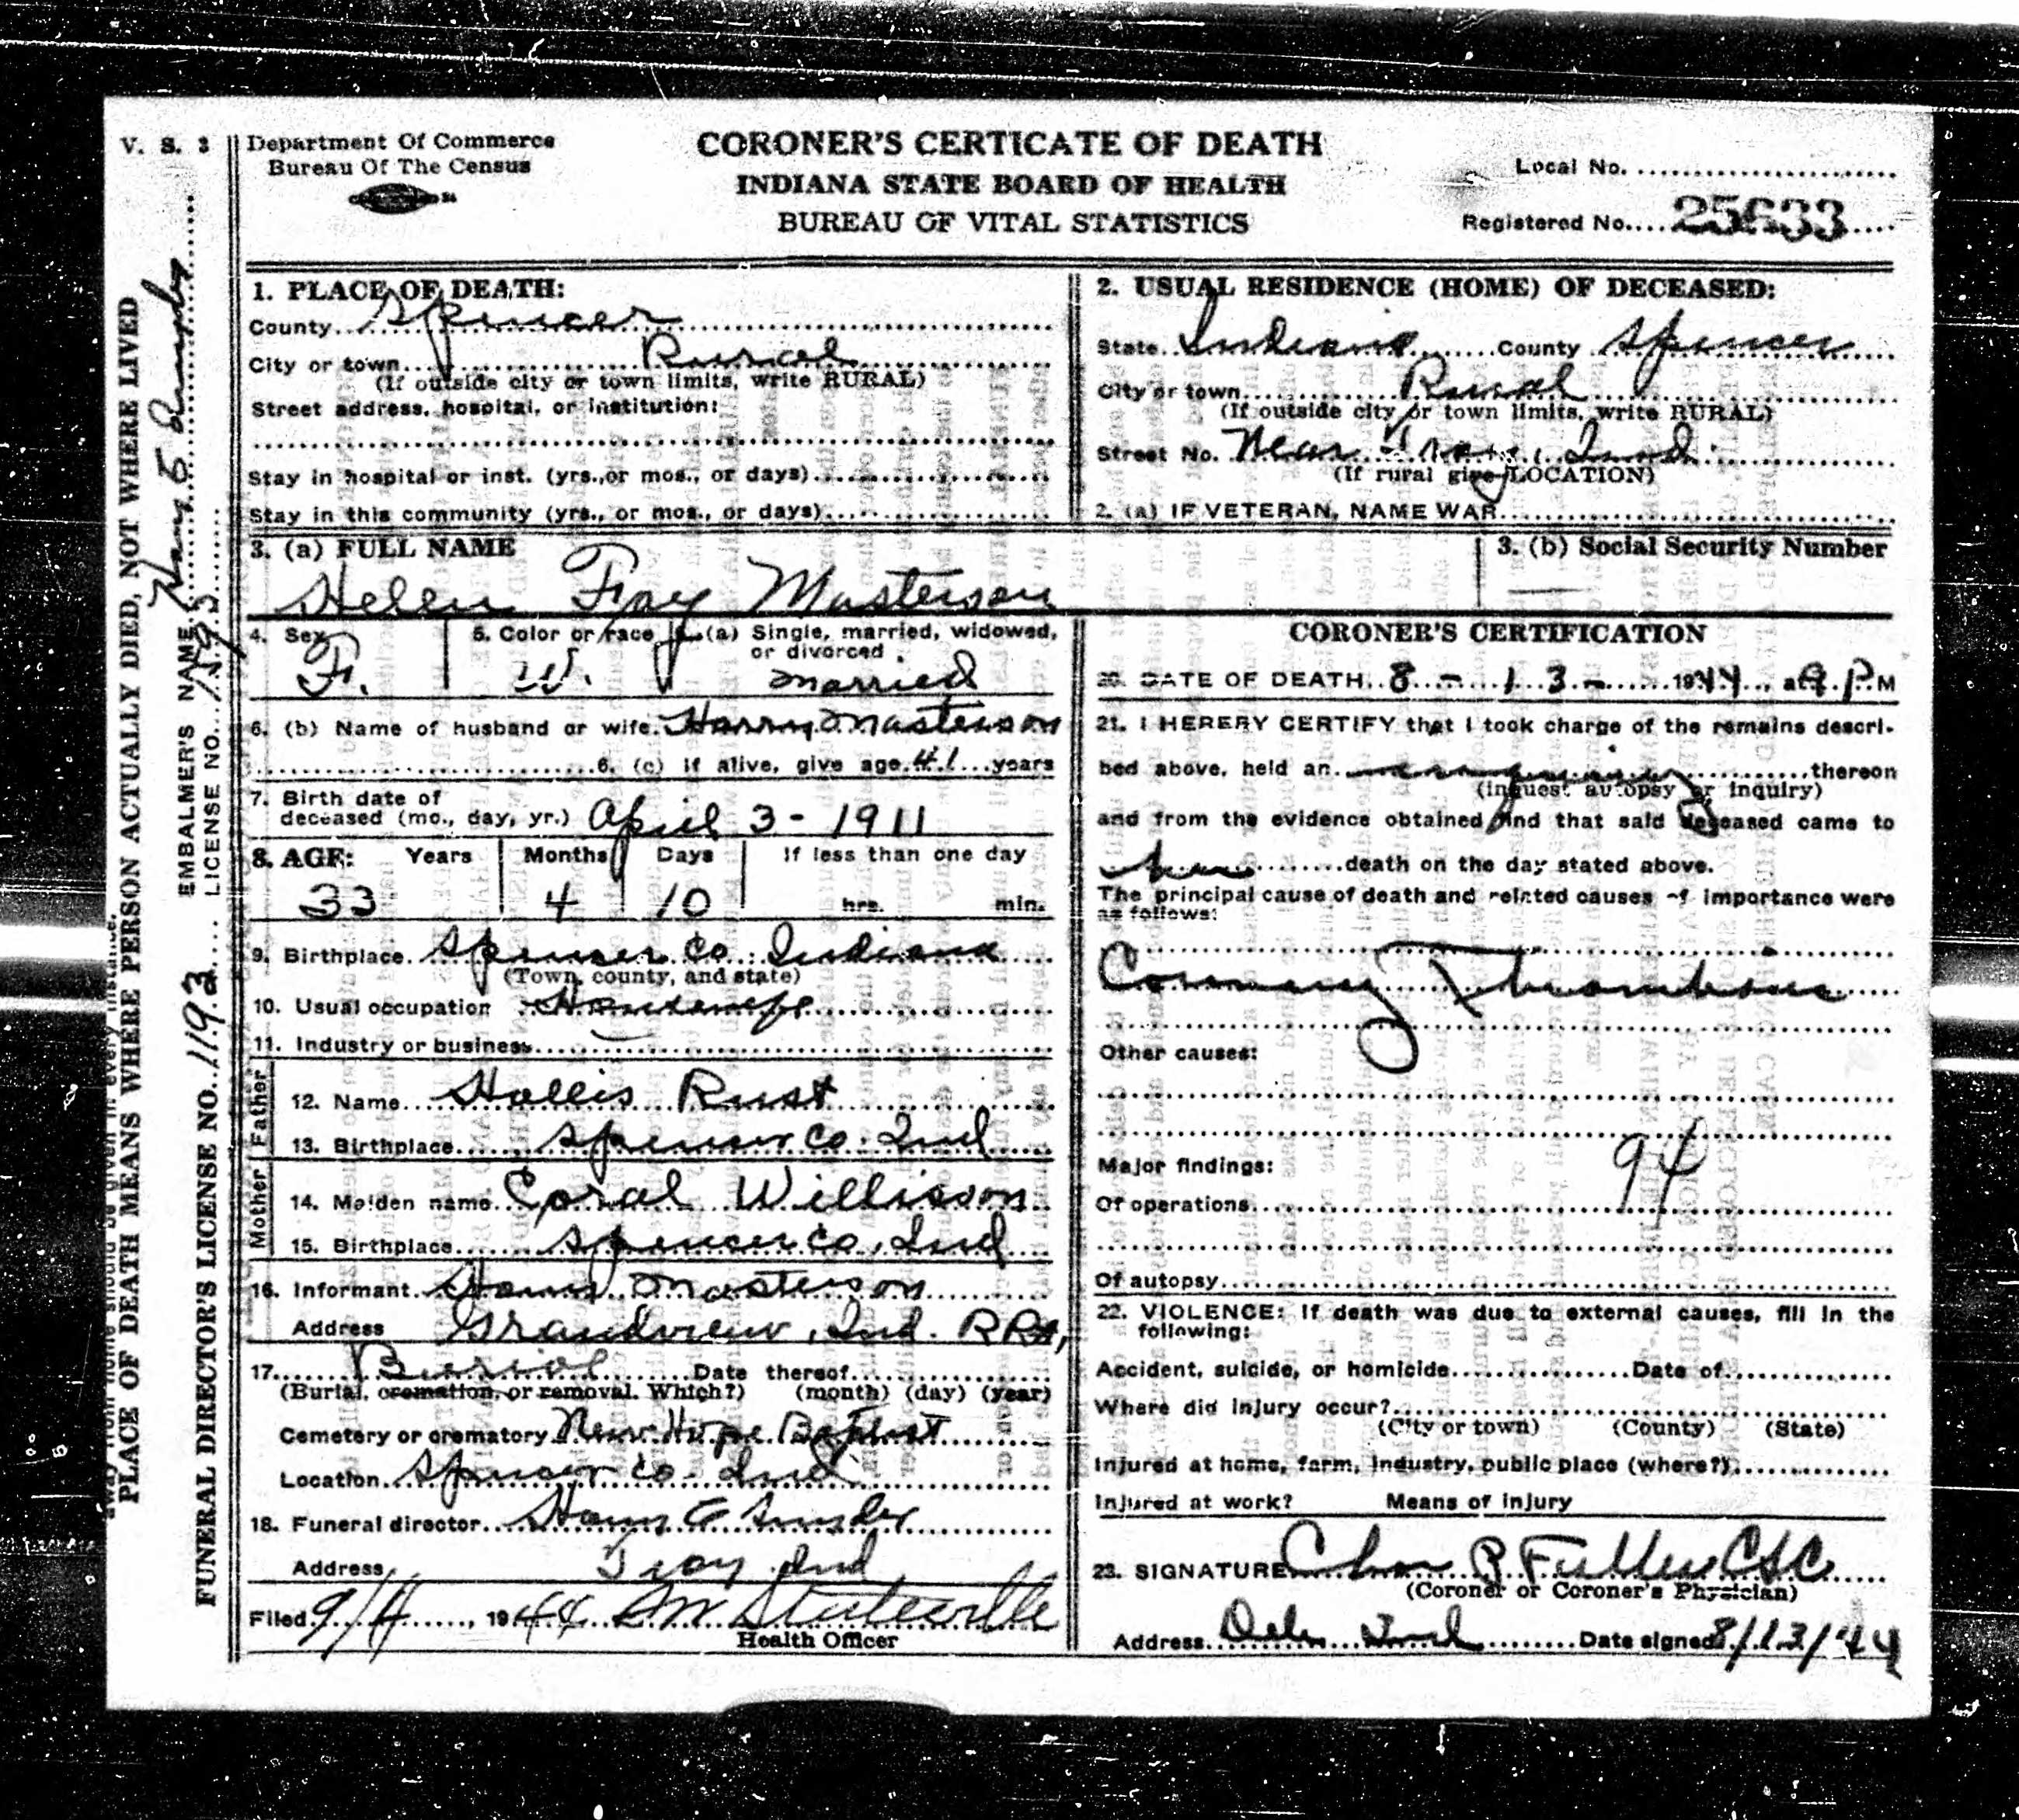 V. S. 3
Department Of Commerce
Bureau Of The Census
CORONER'S CERTICATE OF DEATH
INDIANA STATE BOARD OF HEALTH
BUREAU OF VITAL STATISTICS
Local No.
Registered No. 25633
1. PLACE OF DEATH:
County Spencer
City or town Rural
(If outside city or town limits, write RURAL)
Street address, hospital, or institution:
Stay in hospital or inst. (yrs., or mos., or days)
Stay in this community (yrs., or mos., or days)
2. USUAL RESIDENCE (HOME) OF DECEASED:
State Indiana County Spencer
City or town Rural
(If outside city or town limits, write RURAL)
Street No. Near Troy, Ind.
(If rural give LOCATION)
2. (a) IF VETERAN, NAME WAR
3. (a) FULL NAME
Helen Fay Masterson
3. (b) Social Security Number
—
4. Sex
F.
5. Color or race
W.
6. (a) Single, married, widowed, or divorced
Married
6. (b) Name of husband or wife Harry Masterson
6. (c) if alive, give age 41 years
7. Birth date of
deceased (mo., day, yr.) April 3 - 1911
8. AGE: Years Months Days If less than one day
33 4 10 hrs. min.
9. Birthplace Spencer Co. Indiana
(Town, county, and state)
10. Usual occupation Housewife
11. Industry or business
Father
12. Name Hollis Rust
13. Birthplace Spencer Co. Ind
Mother
14. Maiden name Coral Willisson
15. Birthplace Spencer Co, Ind
16. Informant Harry Masterson
Address Grandview, Ind. RR
17. Burial Date thereof
(Burial, cremation, or removal. Which?) (month) (day) (year)
Cemetery or crematory New Hope Baptist
Location Spencer Co. Ind
18. Funeral director
Address Troy Ind
Filed 9/4, 1944
Health Officer
CORONER'S CERTIFICATION
20. DATE OF DEATH 8 - 13 - 1944, at 9 P M
21. I HEREBY CERTIFY that I took charge of the remains descri-
bed above, held an thereon
(inquest autopsy or inquiry)
and from the evidence obtained find that said deceased came to
her death on the day stated above.
The principal cause of death and related causes of importance were
as follows:
Coronary Thrombosis
Other causes:
94
Major findings:
Of operations
Of autopsy
22. VIOLENCE: If death was due to external causes, fill in the
following:
Accident, suicide, or homicide Date of
Where did injury occur?
(City or town) (County) (State)
Injured at home, farm, industry, public place (where?)
Injured at work? Means of injury
23. SIGNATURE Chas R Fuller CSC
(Coroner or Coroner's Physician)
Address Dale Ind Date signed 8/13/44
EMBALMER'S NAME
LICENSE NO.
FUNERAL DIRECTOR'S LICENSE NO. 1193
PLACE OF DEATH MEANS WHERE PERSON ACTUALLY DIED, NOT WHERE LIVED
away from home should be given in every instance.